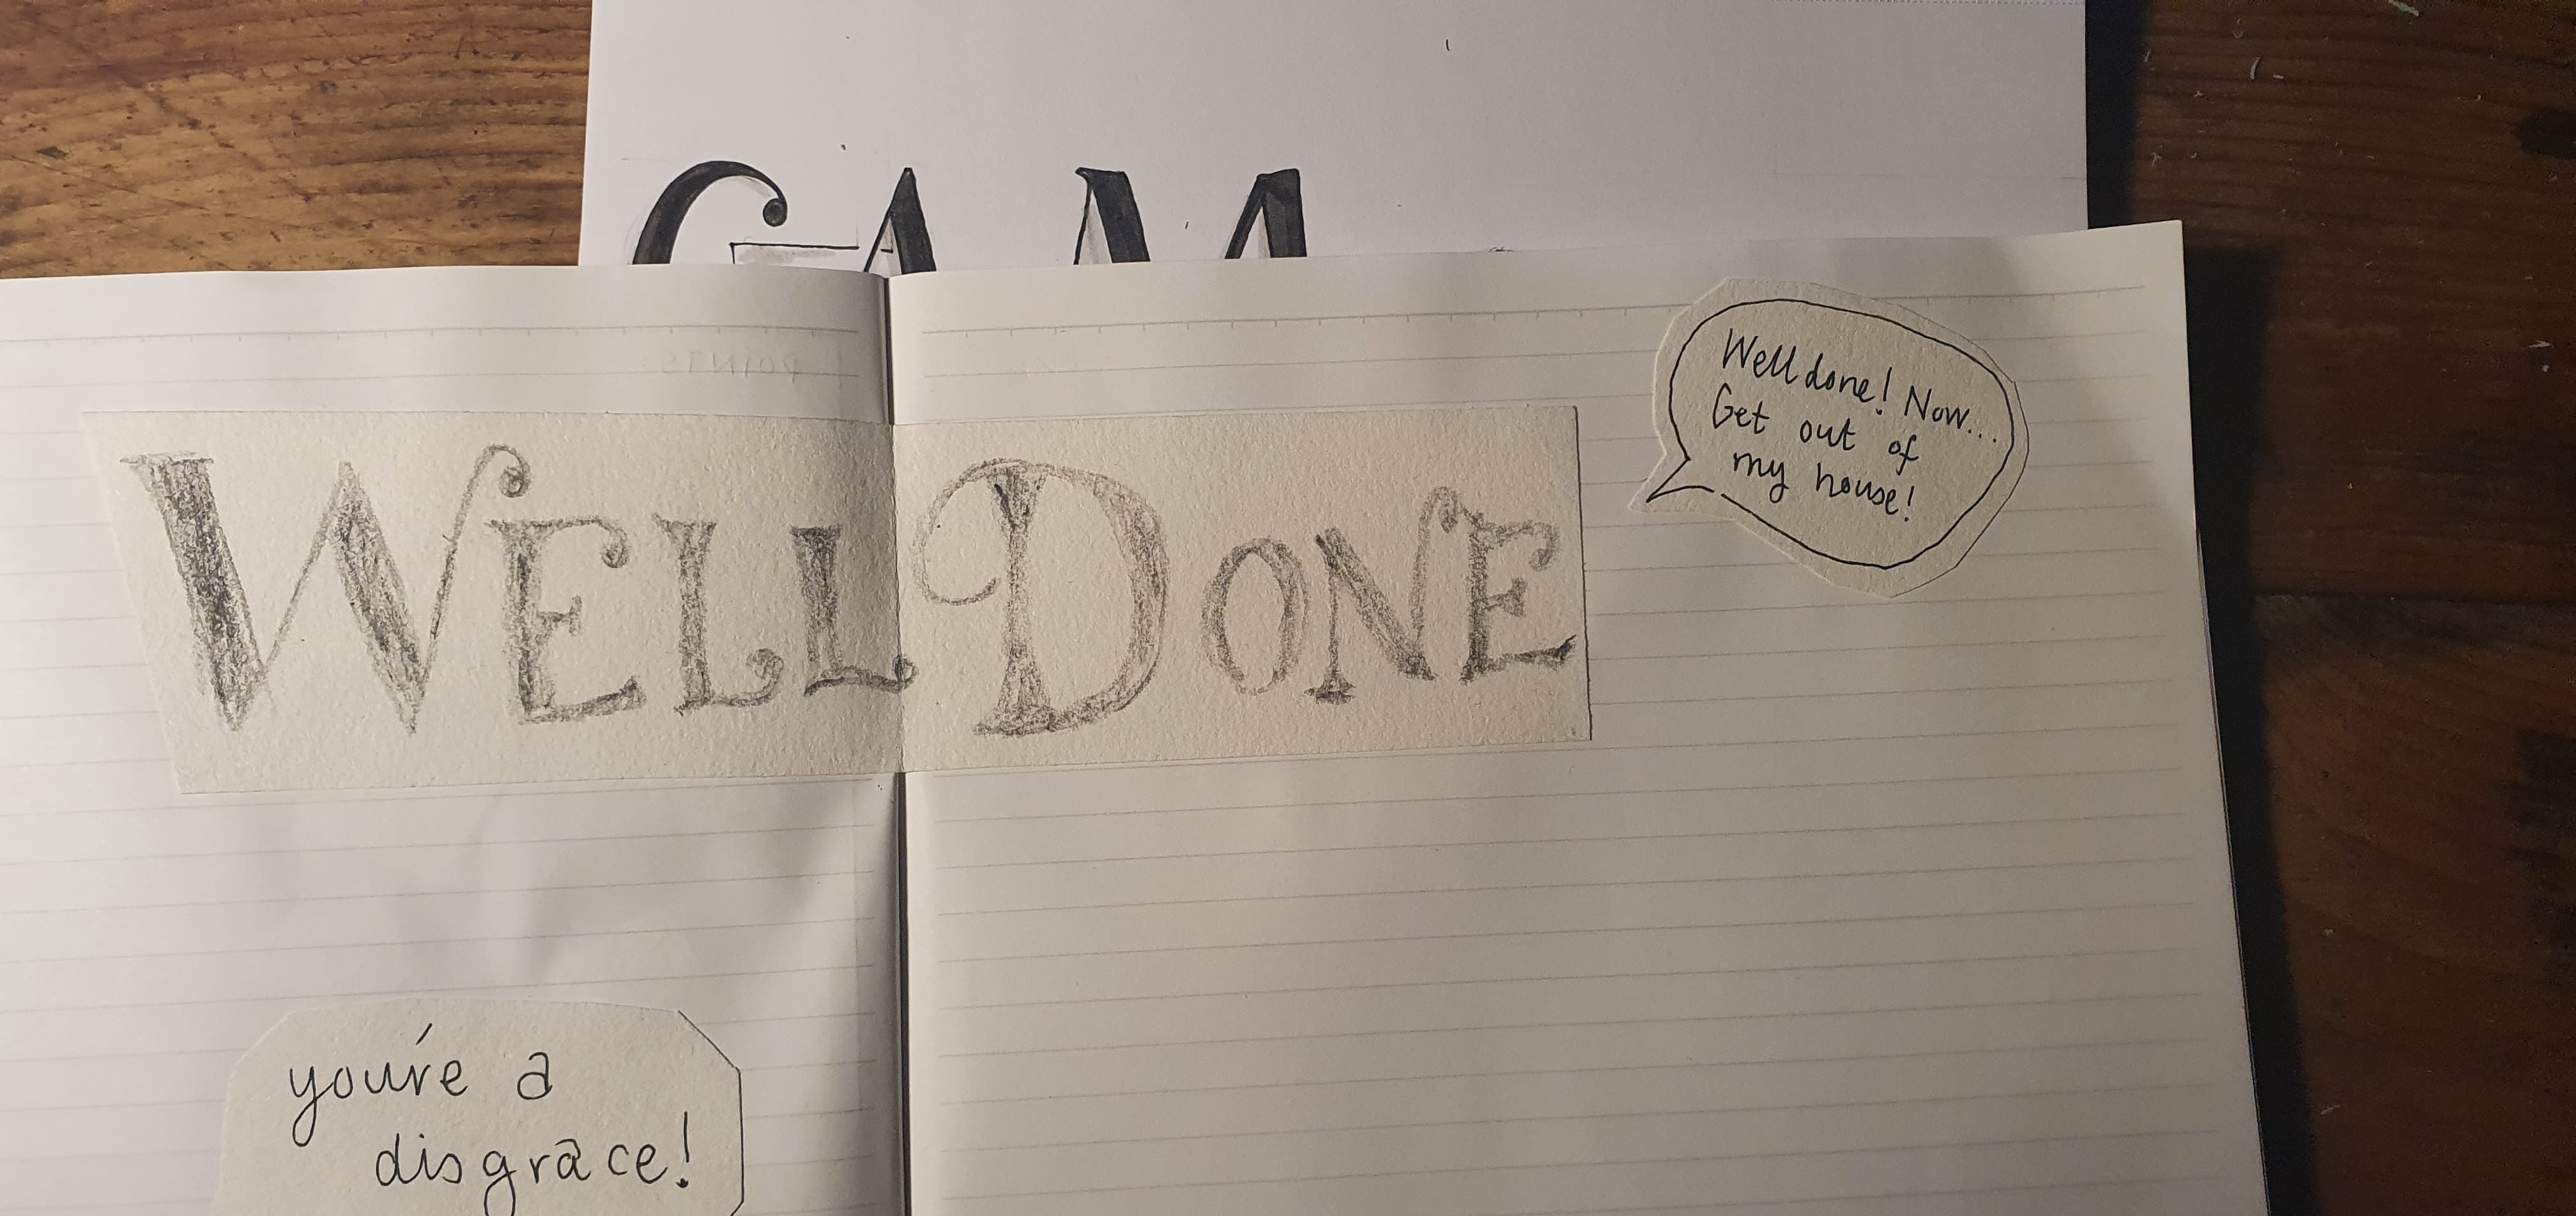 GAM
WELL DONE
Well done! Now...
Get out of
my house!
you're a
disgrace!